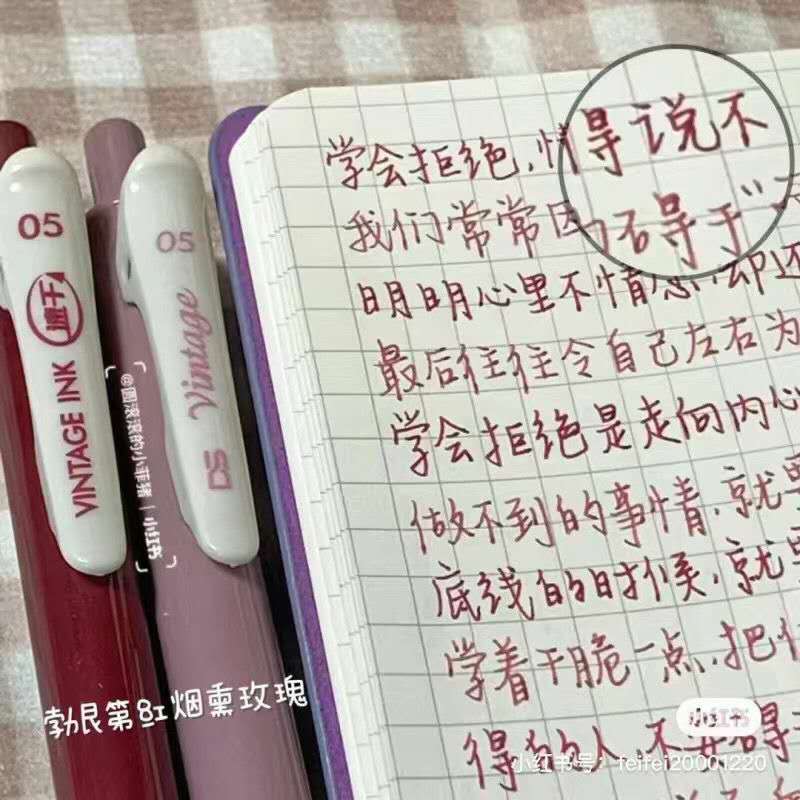 05
速干
VINTAGE INK
05
Vintage
DS
@圆滚滚的小菲猪 | 小红书
学会拒绝,懂得说不
我们常常因
得于"
明明心里不情愿,却还
最后往往令自己左右为
学会拒绝是走向内心
做不到的事情,就要
底线的时候,就要
学着干脆一点,把
得
人,不
得
勃艮第红烟熏玫瑰
小红书
小红书号:feifei20001220